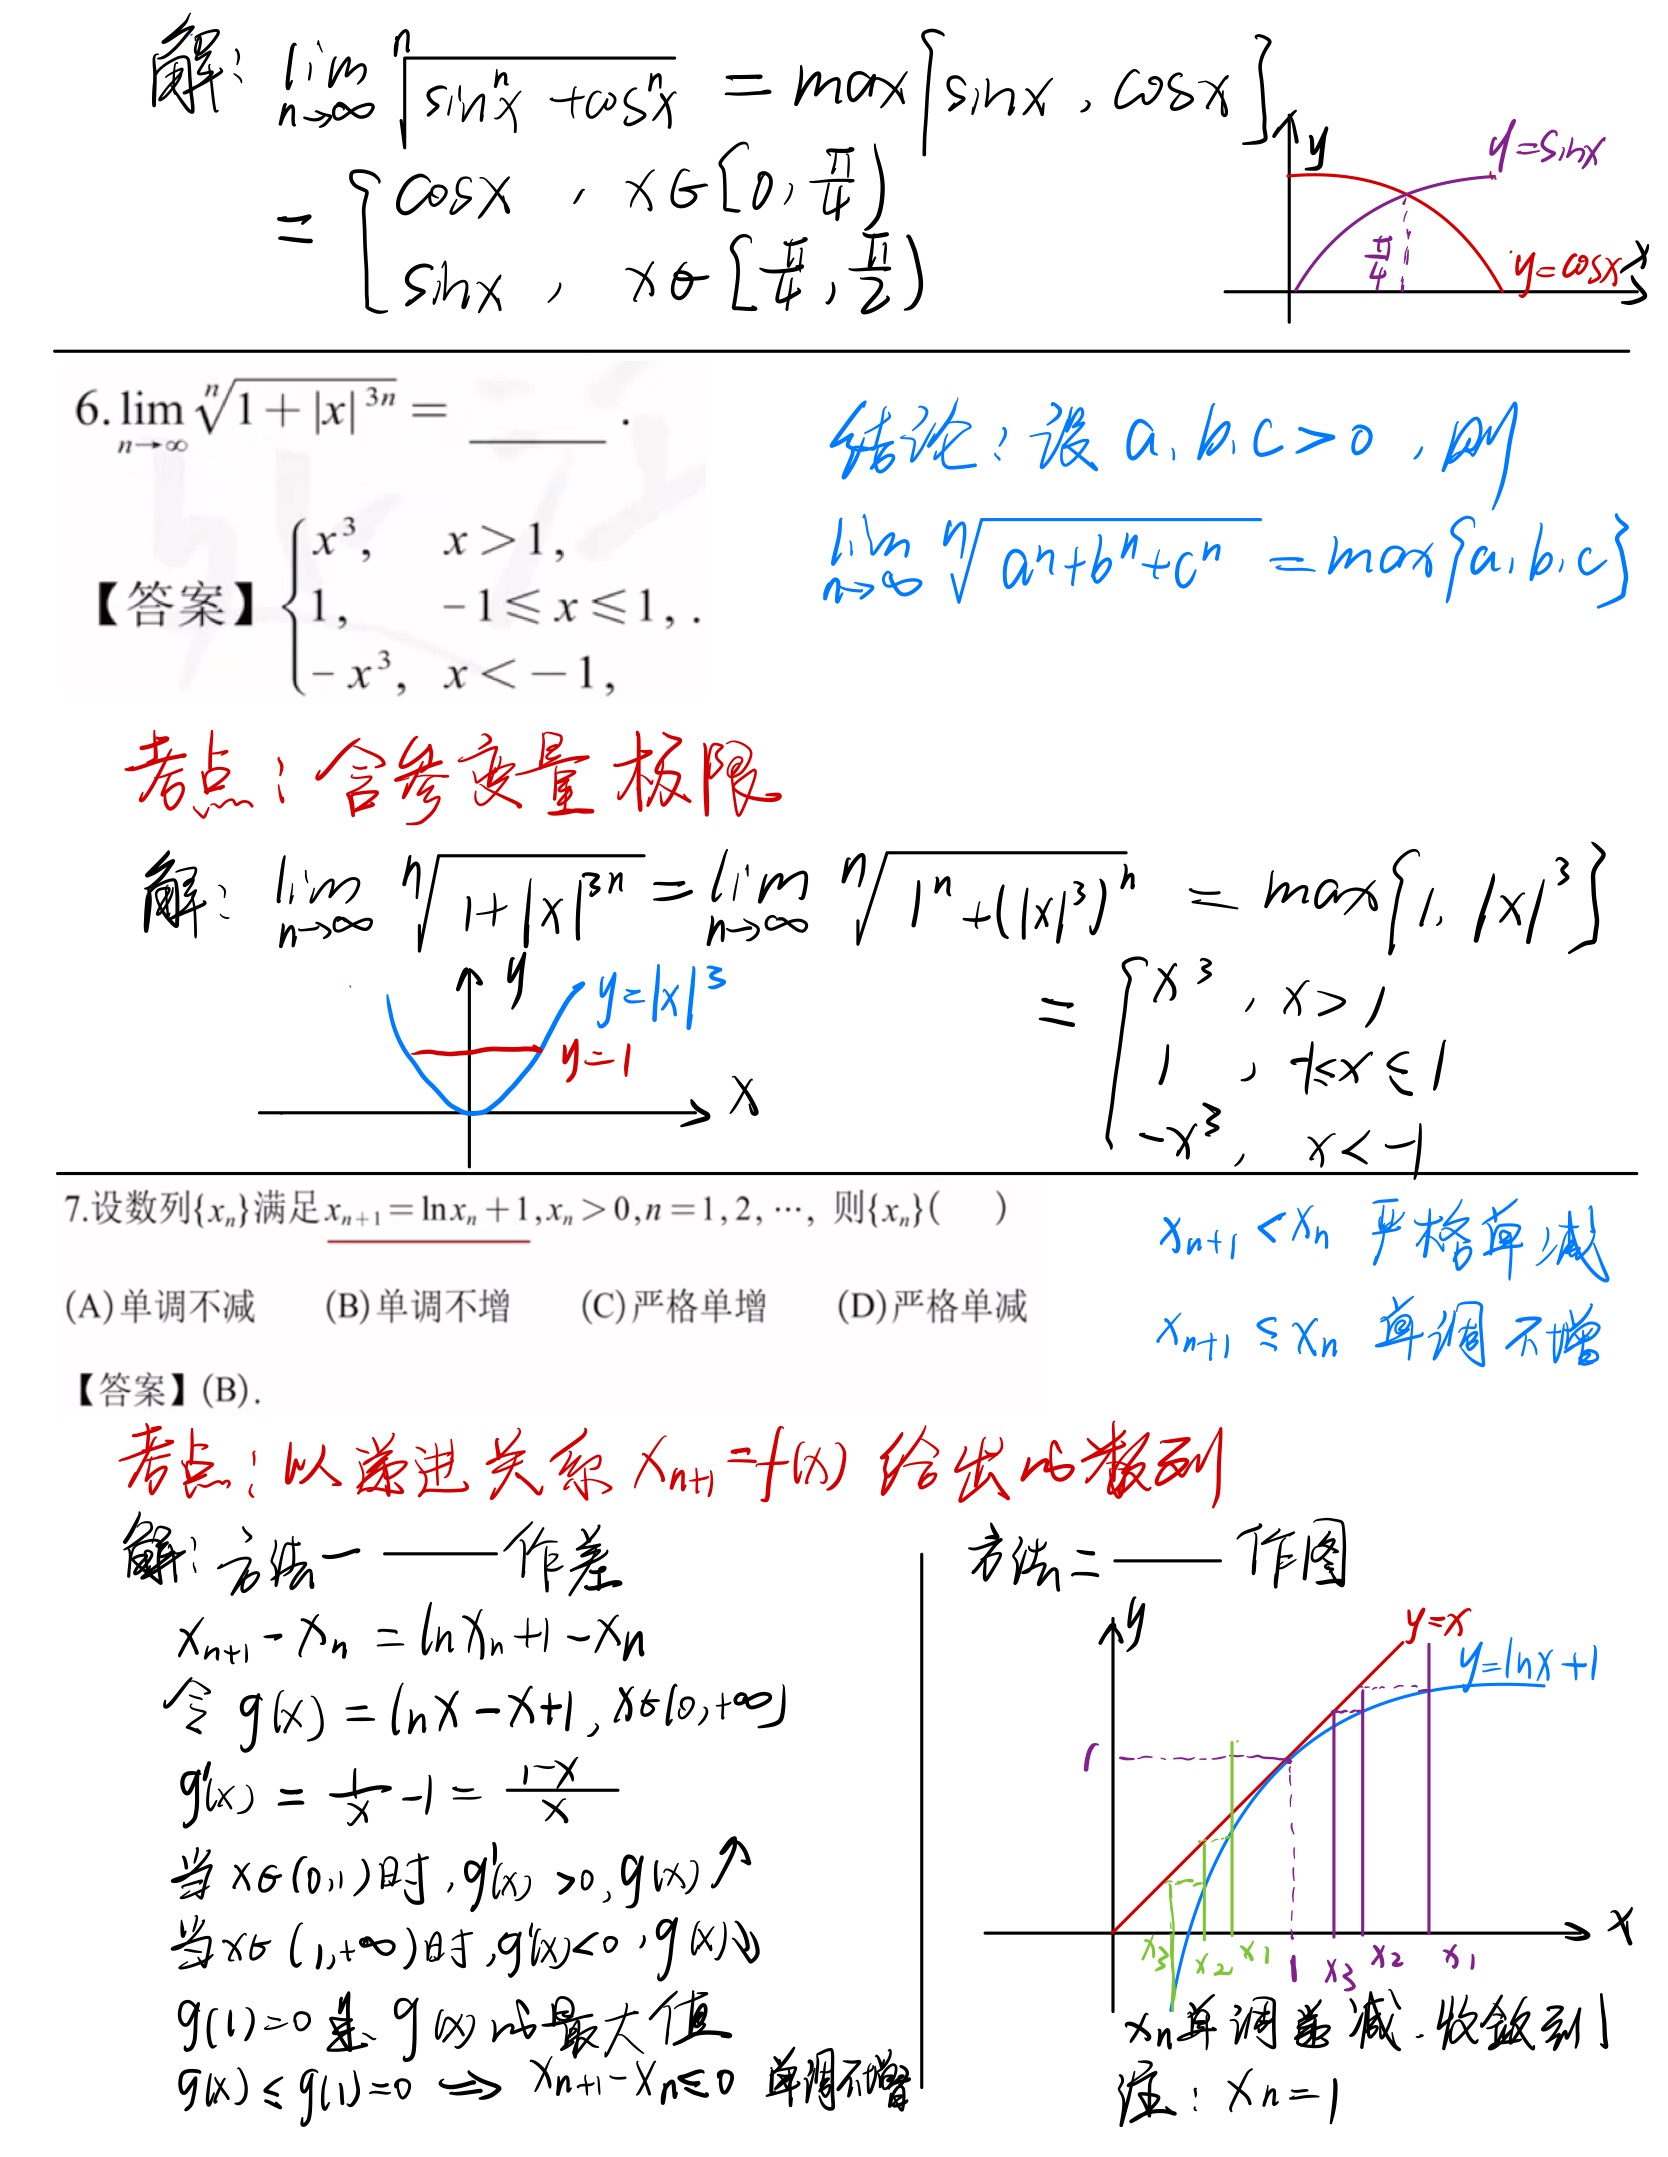 解: lim n→∞ ⁿ√(sinⁿx + cosⁿx) = max{sinx, cosx}
= { cosx , x∈[0, π/4)
sinx , x∈[π/4, π/2)
y
y=sinx
π/4
y=cosx
x
6. lim n→∞ ⁿ√(1+|x|³ⁿ) = ______ .
【答案】 { x³, x>1,
1, -1≤x≤1, .
-x³, x<-1,
结论: 设 a, b, c>0 , 则
lim n→∞ ⁿ√(aⁿ+bⁿ+cⁿ) = max{a, b, c}
考点: 含参变量极限
解: lim n→∞ ⁿ√(1+|x|³ⁿ) = lim n→∞ ⁿ√(1ⁿ+(|x|³)ⁿ) = max{1, |x|³}
= { x³ , x>1
1 , -1≤x≤1
-x³, x<-1
y
y=|x|³
y=1
x
7.设数列{xₙ}满足xₙ₊₁=lnxₙ+1,xₙ>0,n=1,2,…, 则{xₙ}( )
(A)单调不减 (B)单调不增 (C)严格单增 (D)严格单减
【答案】(B).
xₙ₊₁<xₙ 严格单减
xₙ₊₁≤xₙ 单调不增
考点: 以递进关系 xₙ₊₁=f(x) 给出的数列
解: 方法一 —— 作差
xₙ₊₁-xₙ = lnxₙ+1-xₙ
令 g(x) = lnx-x+1, x∈(0,+∞)
g'(x) = 1/x -1 = (1-x)/x
当 x∈(0,1)时, g'(x)>0, g(x)↗
当x∈(1,+∞)时, g'(x)<0, g(x)↘
g(1)=0 是 g(x)的最大值
g(x)≤g(1)=0 ⇒ xₙ₊₁-xₙ≤0 单调不增
方法二 —— 作图
y
y=x
y=lnx+1
1
x
x₃ x₂ x₁ 1 x₃ x₂ x₁
xₙ单调递减. 收敛到1
注: xₙ=1